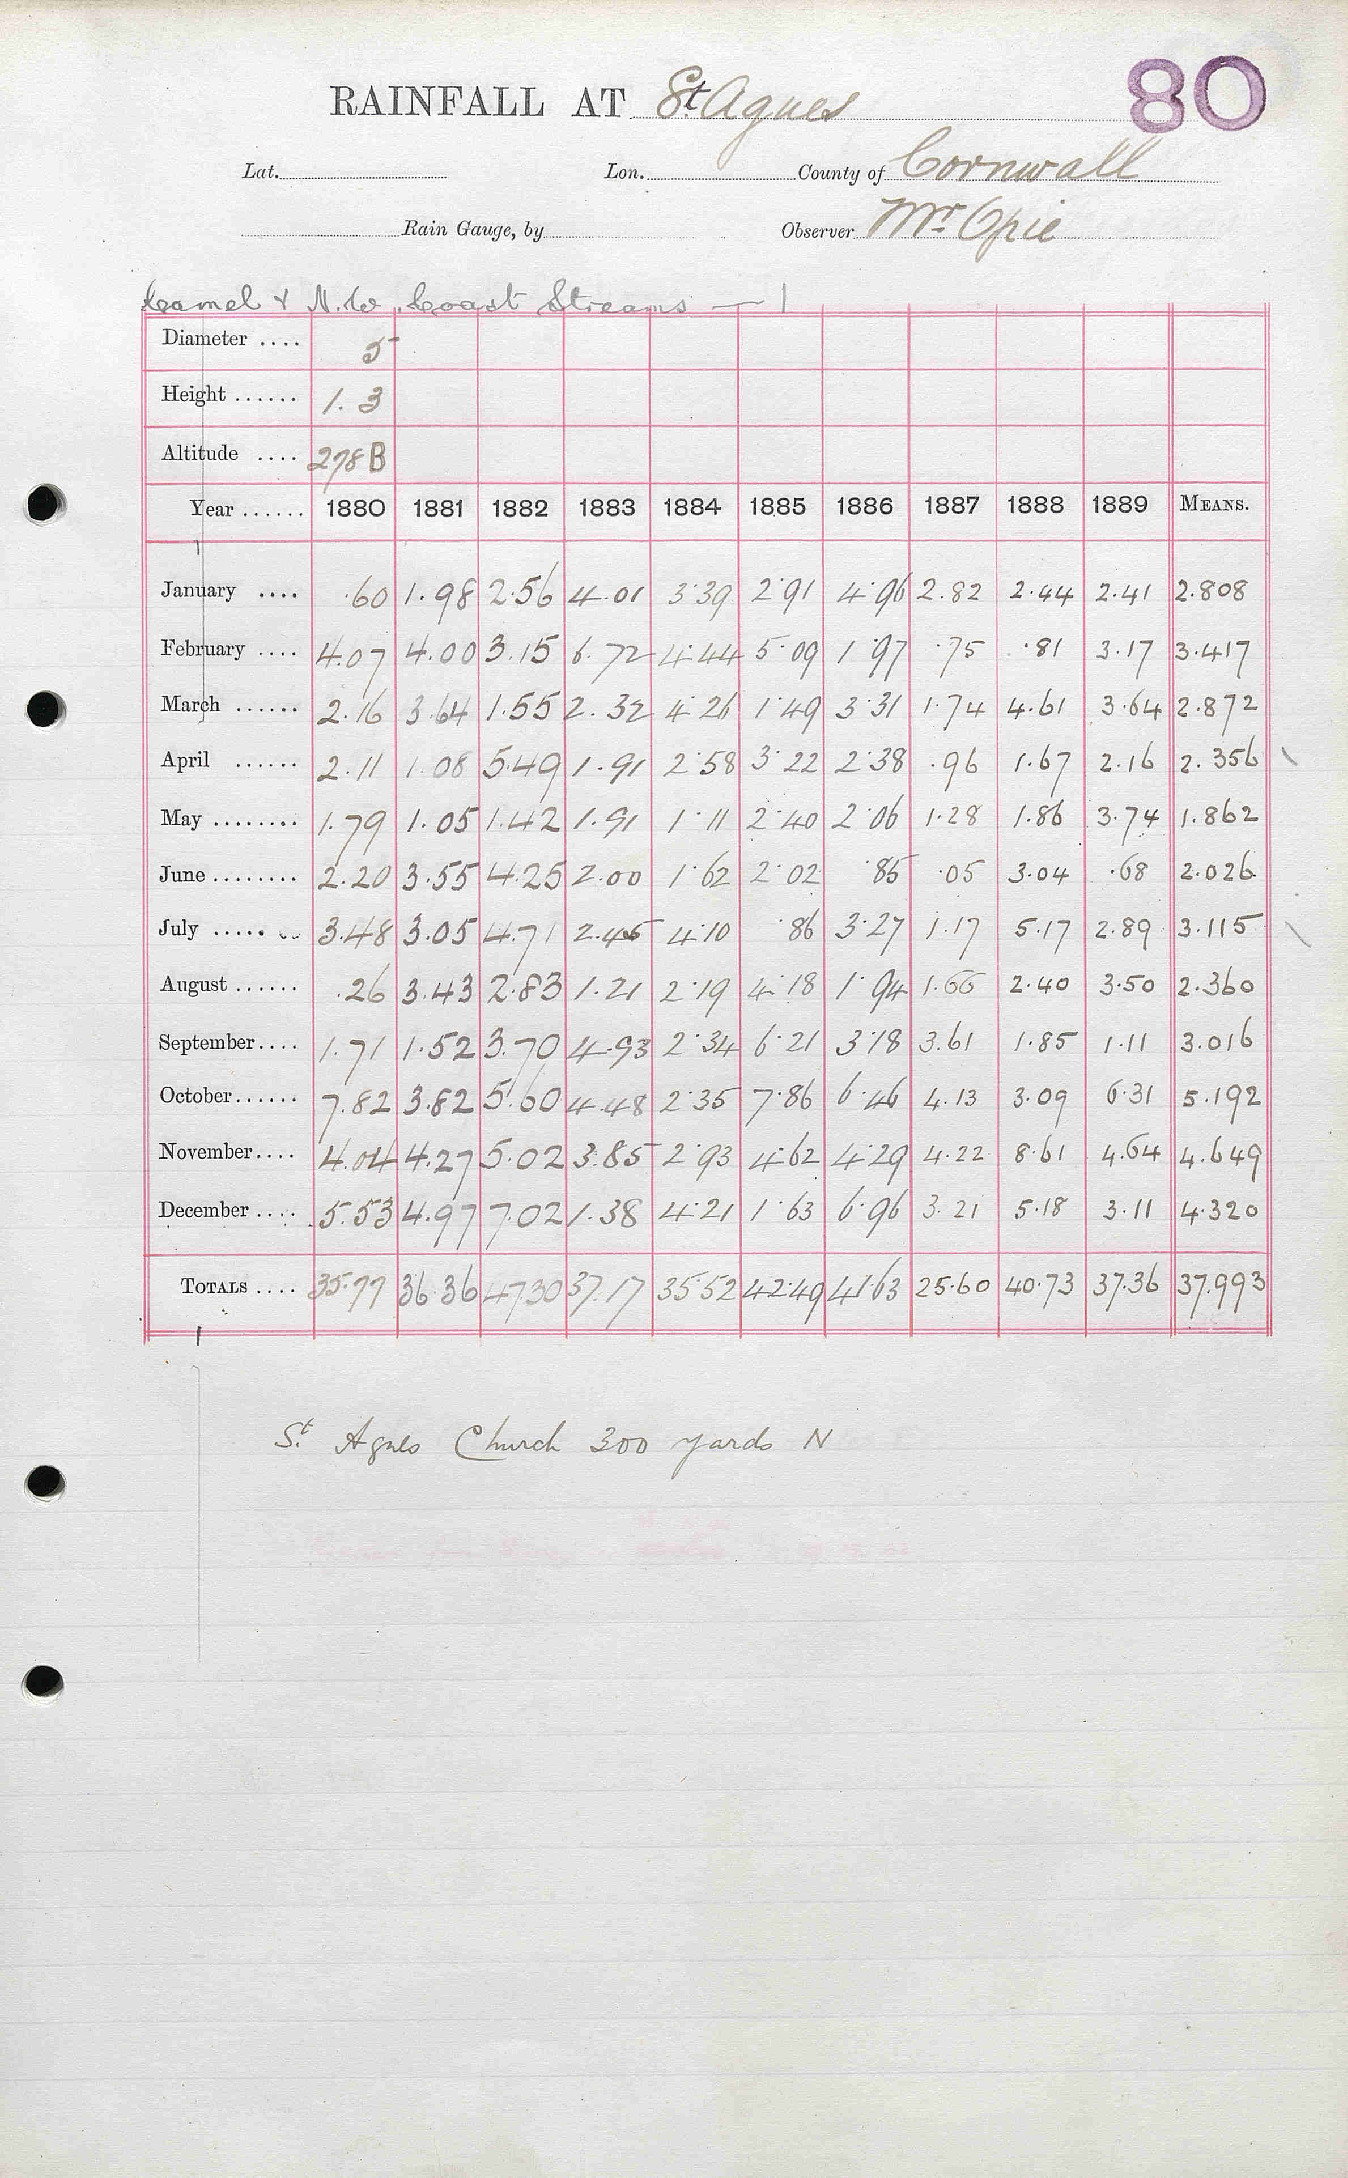 80
RAINFALL AT St Agnes
Lat. Lon. County of Cornwall
Rain Gauge, by Observer Mr Opie
Camel & N.W. Coast Streams — 1
Diameter .... 5
Height ...... 1.3
Altitude .... 278 B
Year ...... 1880 1881 1882 1883 1884 1885 1886 1887 1888 1889 MEANS.
January .... .60 1.98 2.56 4.01 3.39 2.91 4.96 2.82 2.44 2.41 2.808
February .... 4.07 4.00 3.15 6.72 4.44 5.09 1.97 .75 .81 3.17 3.417
March ...... 2.16 3.64 1.55 2.32 4.26 1.49 3.31 1.74 4.61 3.64 2.872
April ...... 2.11 1.08 5.49 1.91 2.58 3.22 2.38 .96 1.67 2.16 2.356
May ........ 1.79 1.05 1.42 1.91 1.11 2.40 2.06 1.28 1.86 3.74 1.862
June ........ 2.20 3.55 4.25 2.00 1.62 2.02 .85 .05 3.04 .68 2.026
July ........ 3.48 3.05 4.71 2.45 4.10 .86 3.27 1.17 5.17 2.89 3.115
August ...... .26 3.43 2.83 1.21 2.19 4.18 1.94 1.66 2.40 3.50 2.360
September.... 1.71 1.52 3.70 4.93 2.34 6.21 3.18 3.61 1.85 1.11 3.016
October...... 7.82 3.82 5.60 4.48 2.35 7.86 6.46 4.13 3.09 6.31 5.192
November.... 4.04 4.27 5.02 3.85 2.93 4.62 4.29 4.22 8.61 4.64 4.649
December .... 5.53 4.97 7.02 1.38 4.21 1.63 6.96 3.21 5.18 3.11 4.320
TOTALS .... 35.77 36.36 47.30 37.17 35.52 42.49 41.63 25.60 40.73 37.36 37.993
St. Agnes Church 300 yards N